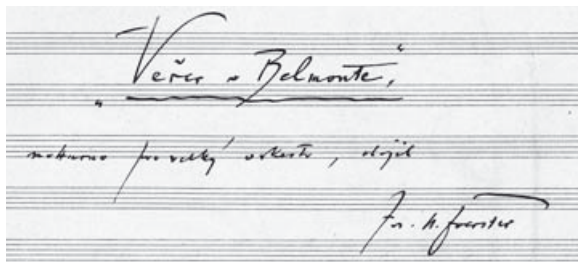 „Večer v Belmonte“,
notturno pro velký orkestr, složil
Jos. B. Foerster